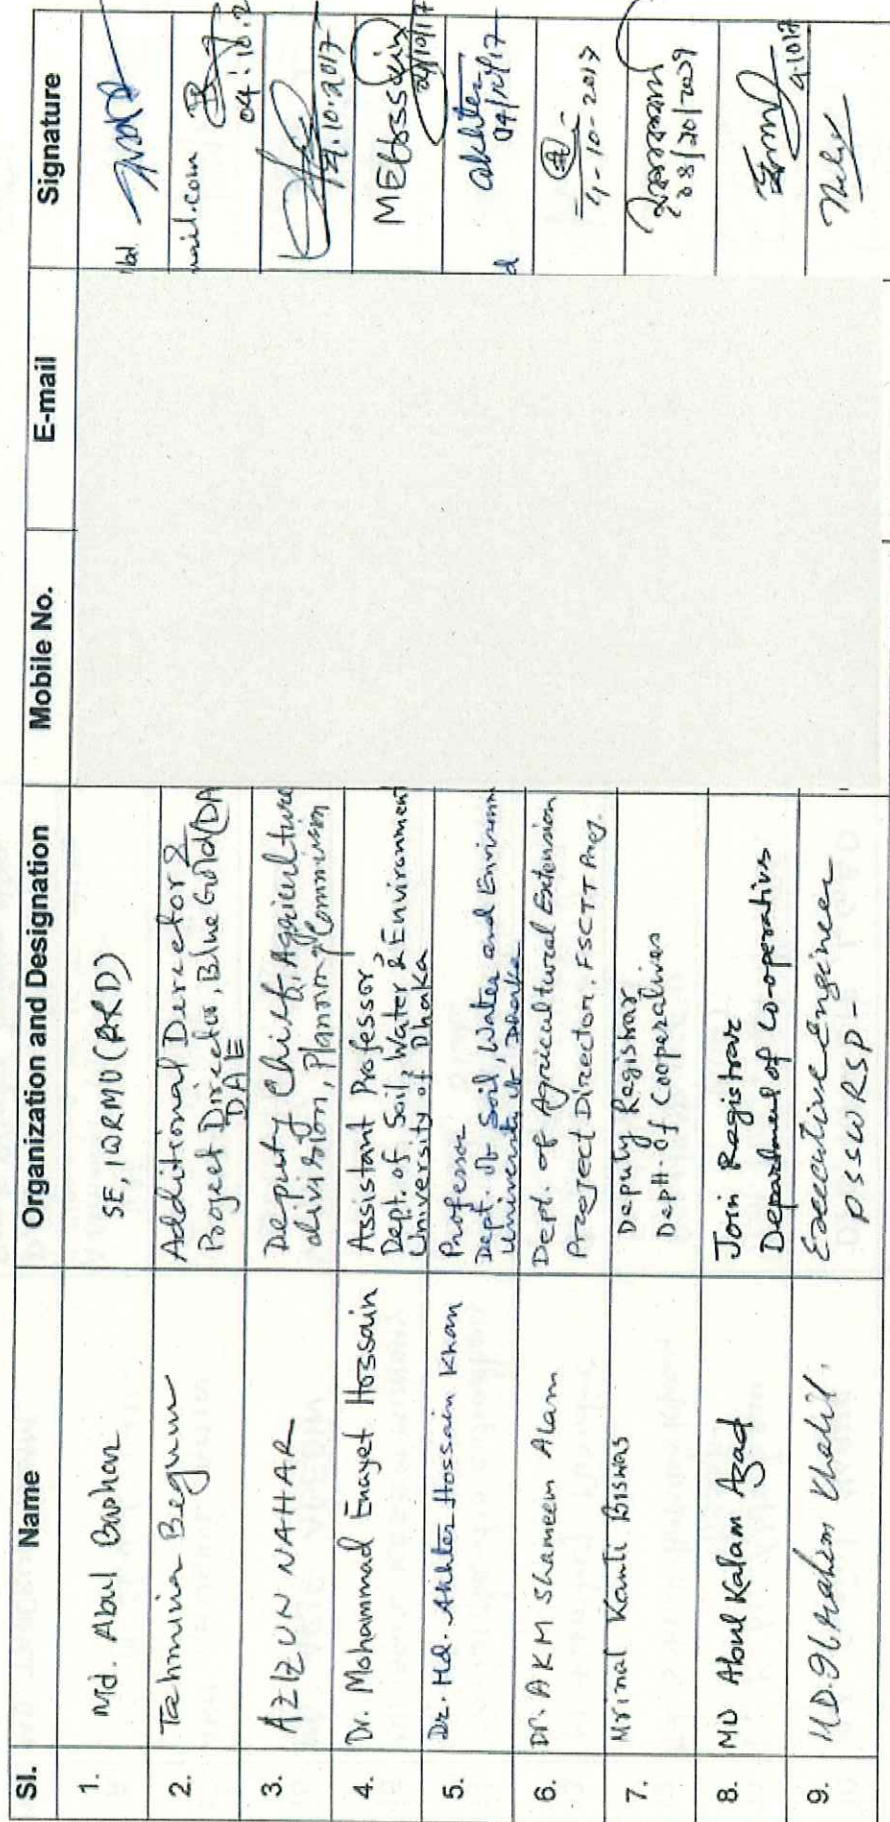 Sl. Name Organization and Designation Mobile No. E-mail Signature
1. Md. Abul Bashar SE, IWRMU (LGED)
2. Tahmina Begum Additional Director &
Project Director, Blue Gold (DA
DAE
mail.com 04.10.2
3. AZIZUN NAHAR Deputy Chief, Agriculture
division, Planning Commission
4.10.2017
4. Dr. Mohammad Enayet Hossain Assistant Professor,
Dept. of Soil, Water & Environment
University of Dhaka
MEHossain
04/10/17
5. Dr. Md. Akhter Hossain Khan Professor
Dept. of Soil, Water and Environm
University of Dhaka
d akhter
04/10/17
6. Dr. AKM Shameem Alam Dept. of Agricultural Extension
Project Director, FSCTT Proj.
4-10-2017
7. Mrinal Kanti Biswas Deputy Registrar
Deptt. of Cooperatives
8. MD Abul Kalam Azad Join Registrar
Department of Co-operatives
4.10.17
9. MD. Ibrahim Khalil. Executive Engineer
PSSWRSP-